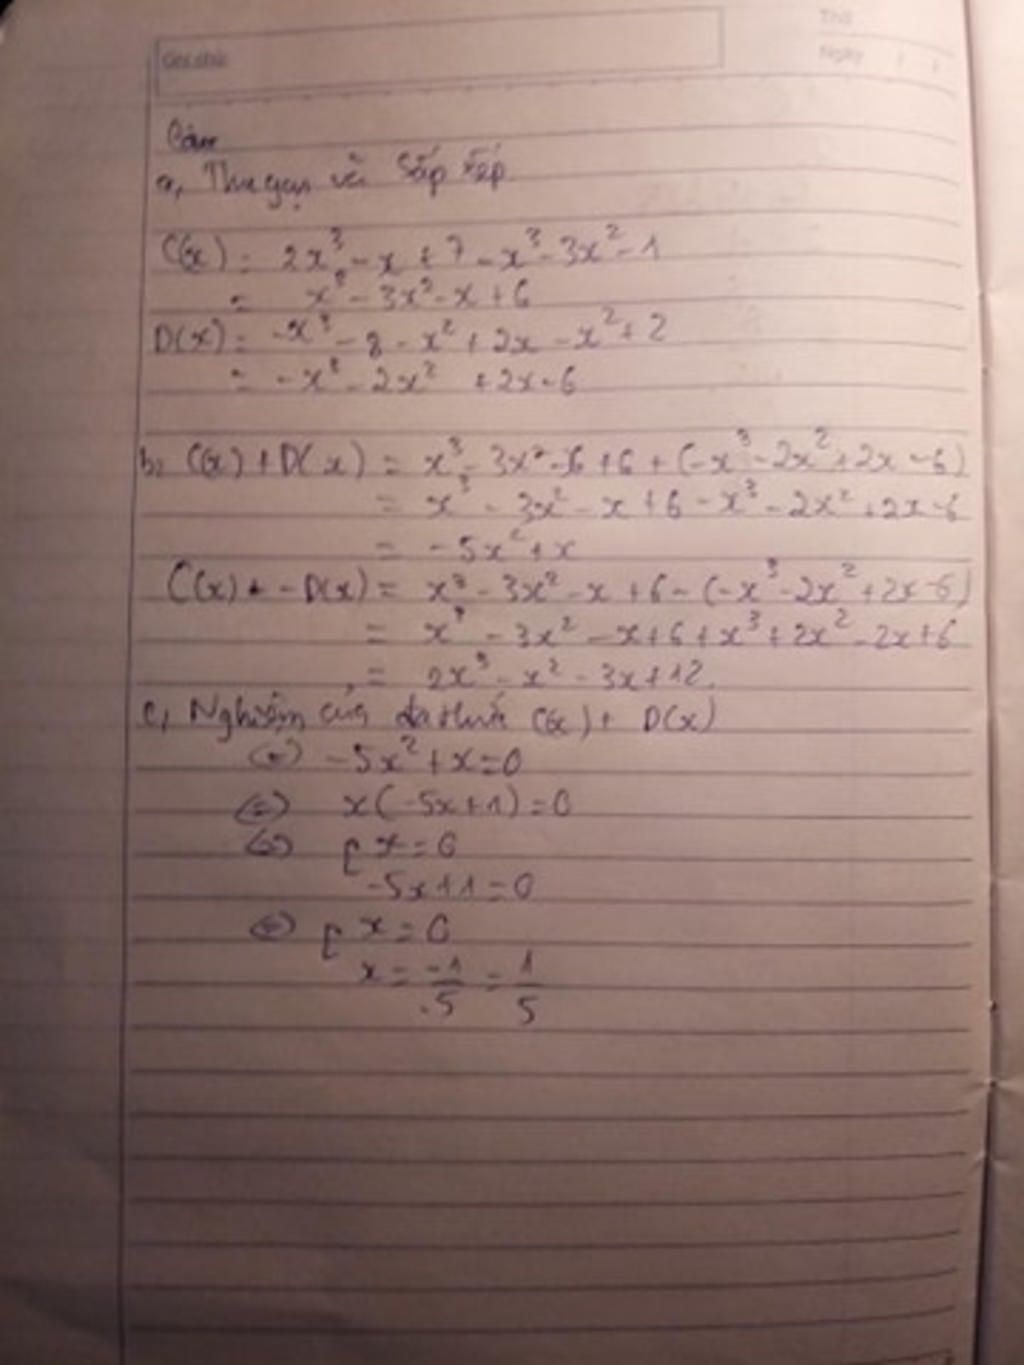 Ghi chú:
Thứ
Ngày
a, Thu gọn và sắp xếp
C(x) = 2x³ - x + 7 - x³ - 3x² - 1
= x³ - 3x² - x + 6
D(x) = -x³ - 8 - x² + 2x - x² + 2
= -x³ - 2x² + 2x - 6
b, C(x) + D(x) = x³ - 3x² - x + 6 + (-x³ - 2x² + 2x - 6)
= x³ - 3x² - x + 6 - x³ - 2x² + 2x - 6
= -5x² + x
C(x) - D(x) = x³ - 3x² - x + 6 - (-x³ - 2x² + 2x - 6)
= x³ - 3x² - x + 6 + x³ + 2x² - 2x + 6
= 2x³ - x² - 3x + 12.
c, Nghiệm của đa thức C(x) + D(x)
-5x² + x = 0
⇔ x(-5x + 1) = 0
⇔ [ x = 0
-5x + 1 = 0
⇔ [ x = 0
x = -1/-5 = 1/5